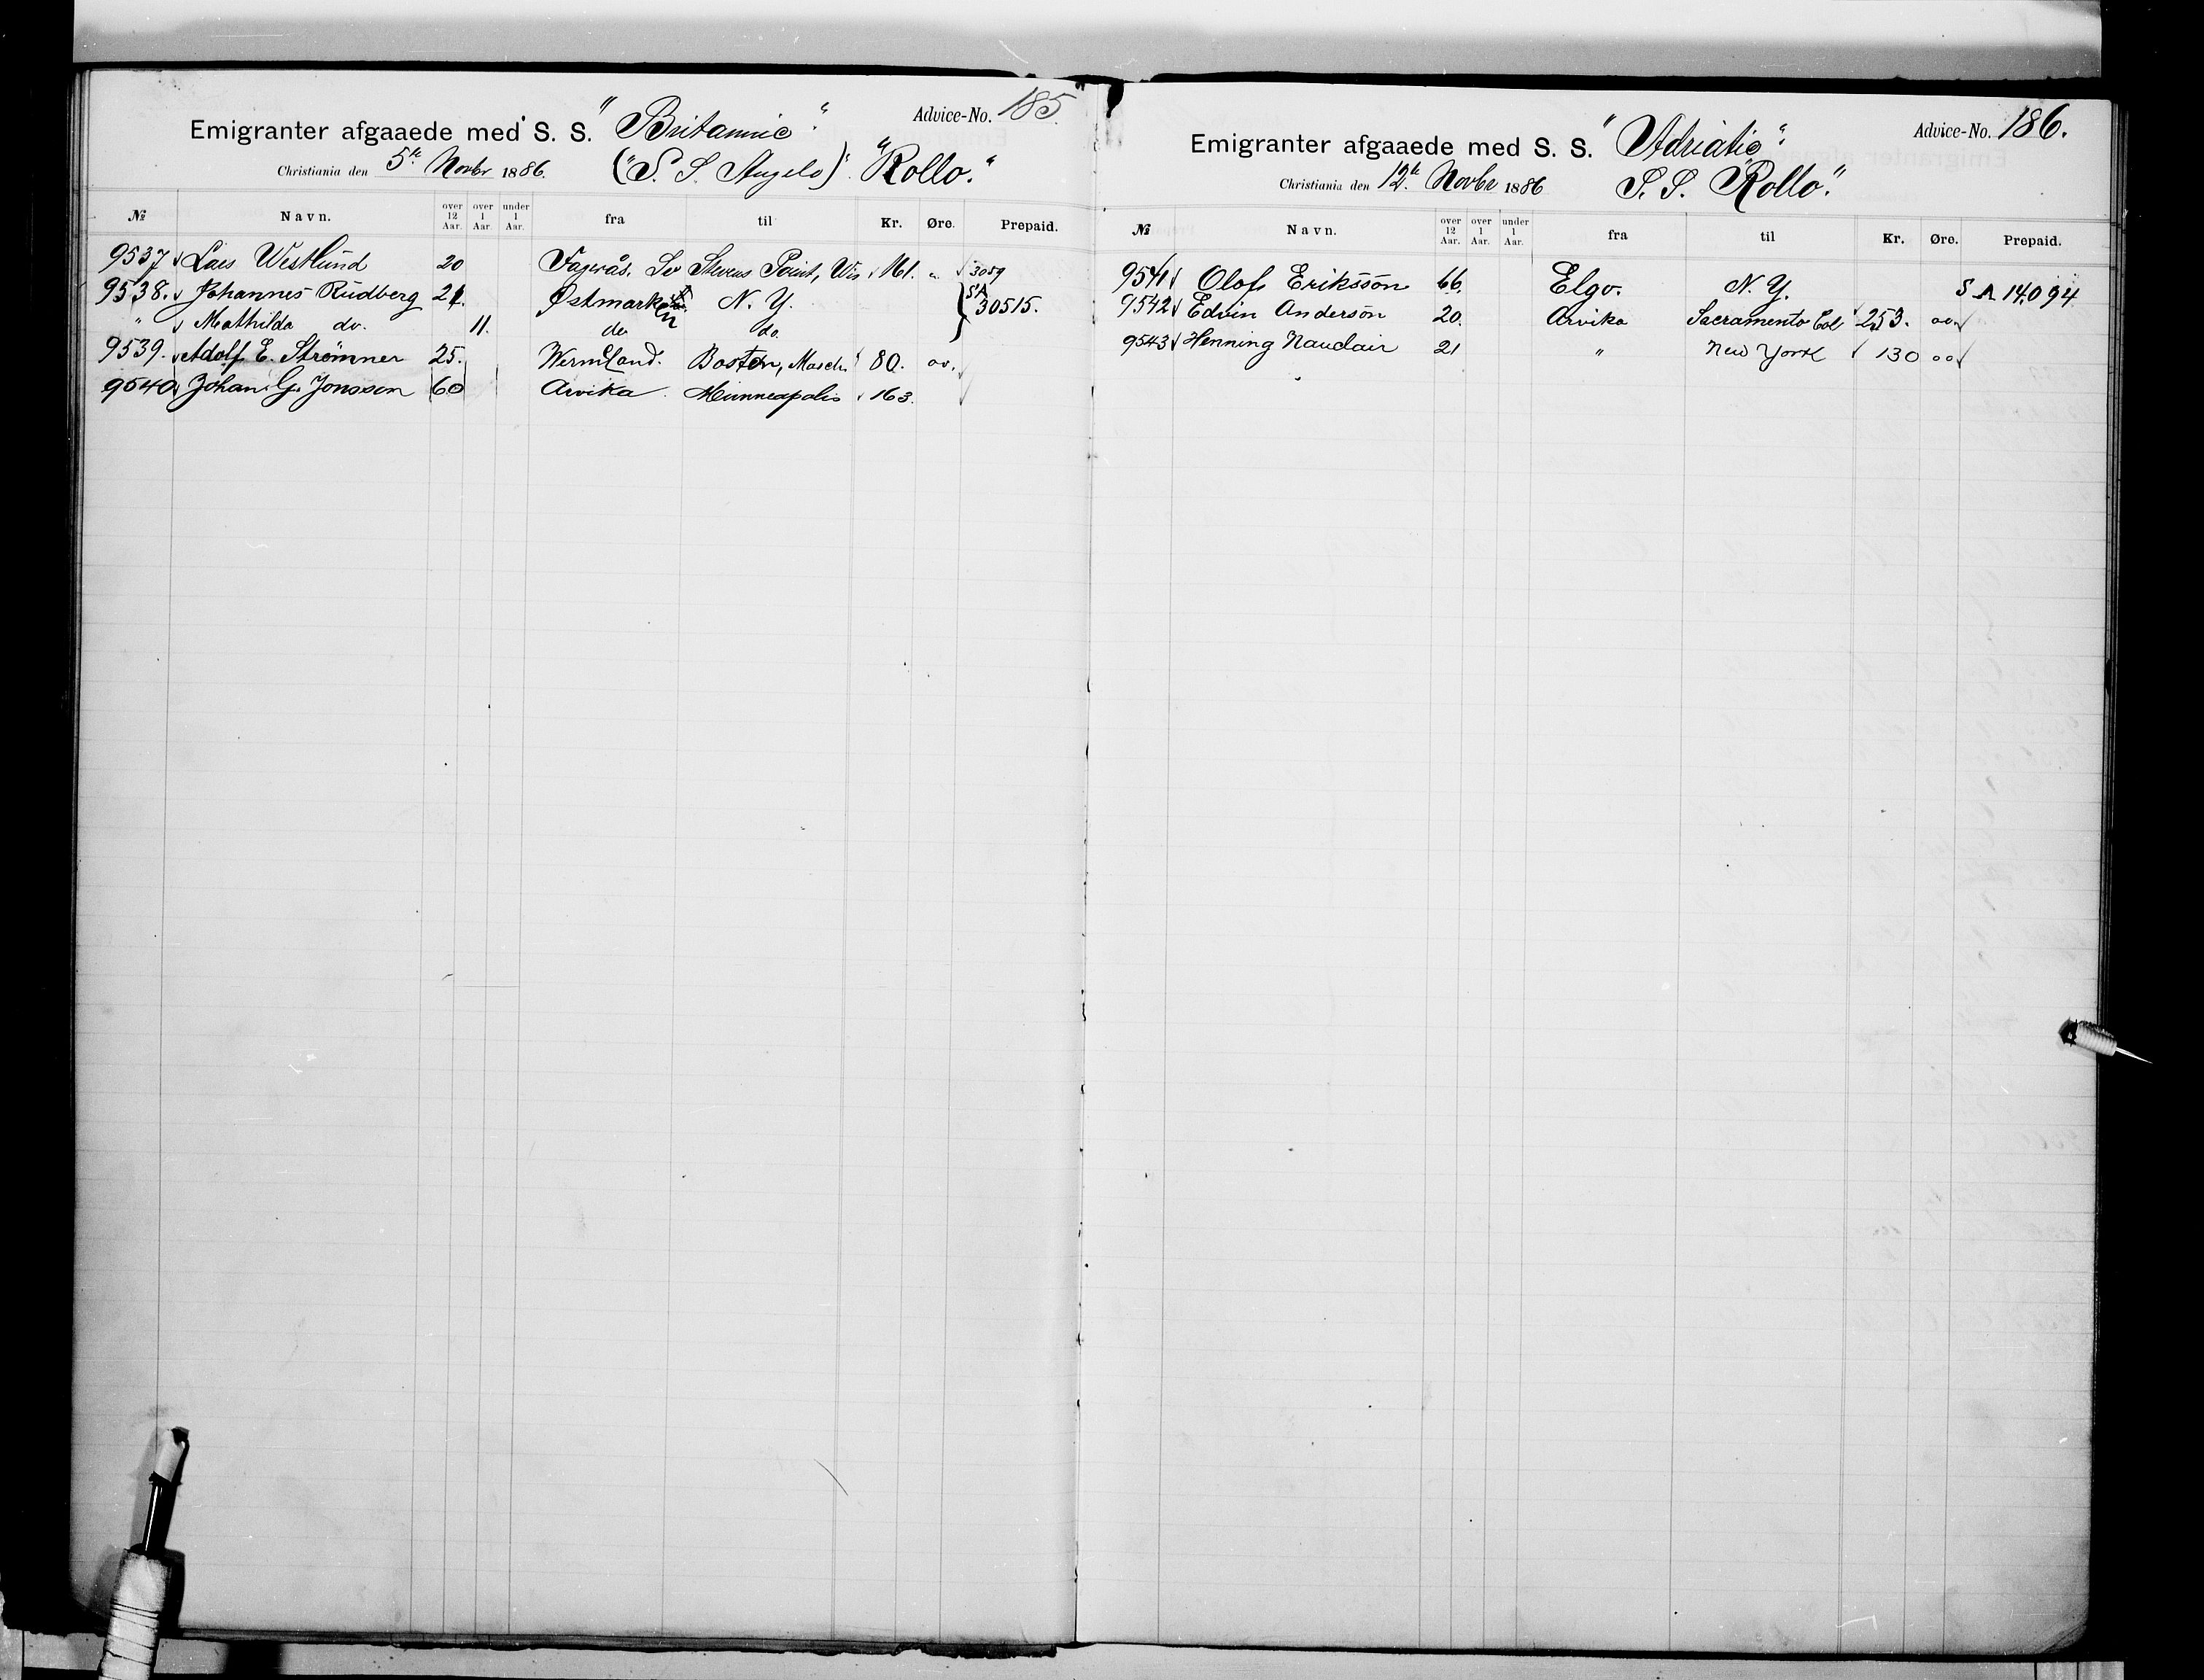 Advice-No. 185.
Emigranter afgaaede med S. S. "Britannic".
Christiania den 5te Novbr 1886. ("S. S. Angelo)". "Rollo."
№ Navn. over 12 Aar. over 1 Aar. under 1 Aar. fra til Kr. Øre. Prepaid.
9537 Lars Westlund 20 Fagerås. Sv Stevens Point, Wis 161. " 3059
9538. Johannes Rudberg 21. Østmarken N. Y. SA 30515.
" Mathilda do. 11. do do.
9539. Adolf E. Strömner 25. Wermland. Boston, Masch. 80. oo.
9540 Johan G. Jonsson 60 Arvika. Minneapolis 163.
Advice-No. 186.
Emigranter afgaaede med S. S. "Adriatic".
Christiania den 12te Novbr 1886 S. S. "Rollo".
№ Navn. over 12 Aar. over 1 Aar. under 1 Aar. fra til Kr. Øre. Prepaid.
9541 Olof Eriksson 66. Elgo. N. Y. S A 14094
9542 Edvin Anderson 20. Arvika Sacramento Col 253. oo.
9543 Henning Nauclair 21 " New York 130 oo